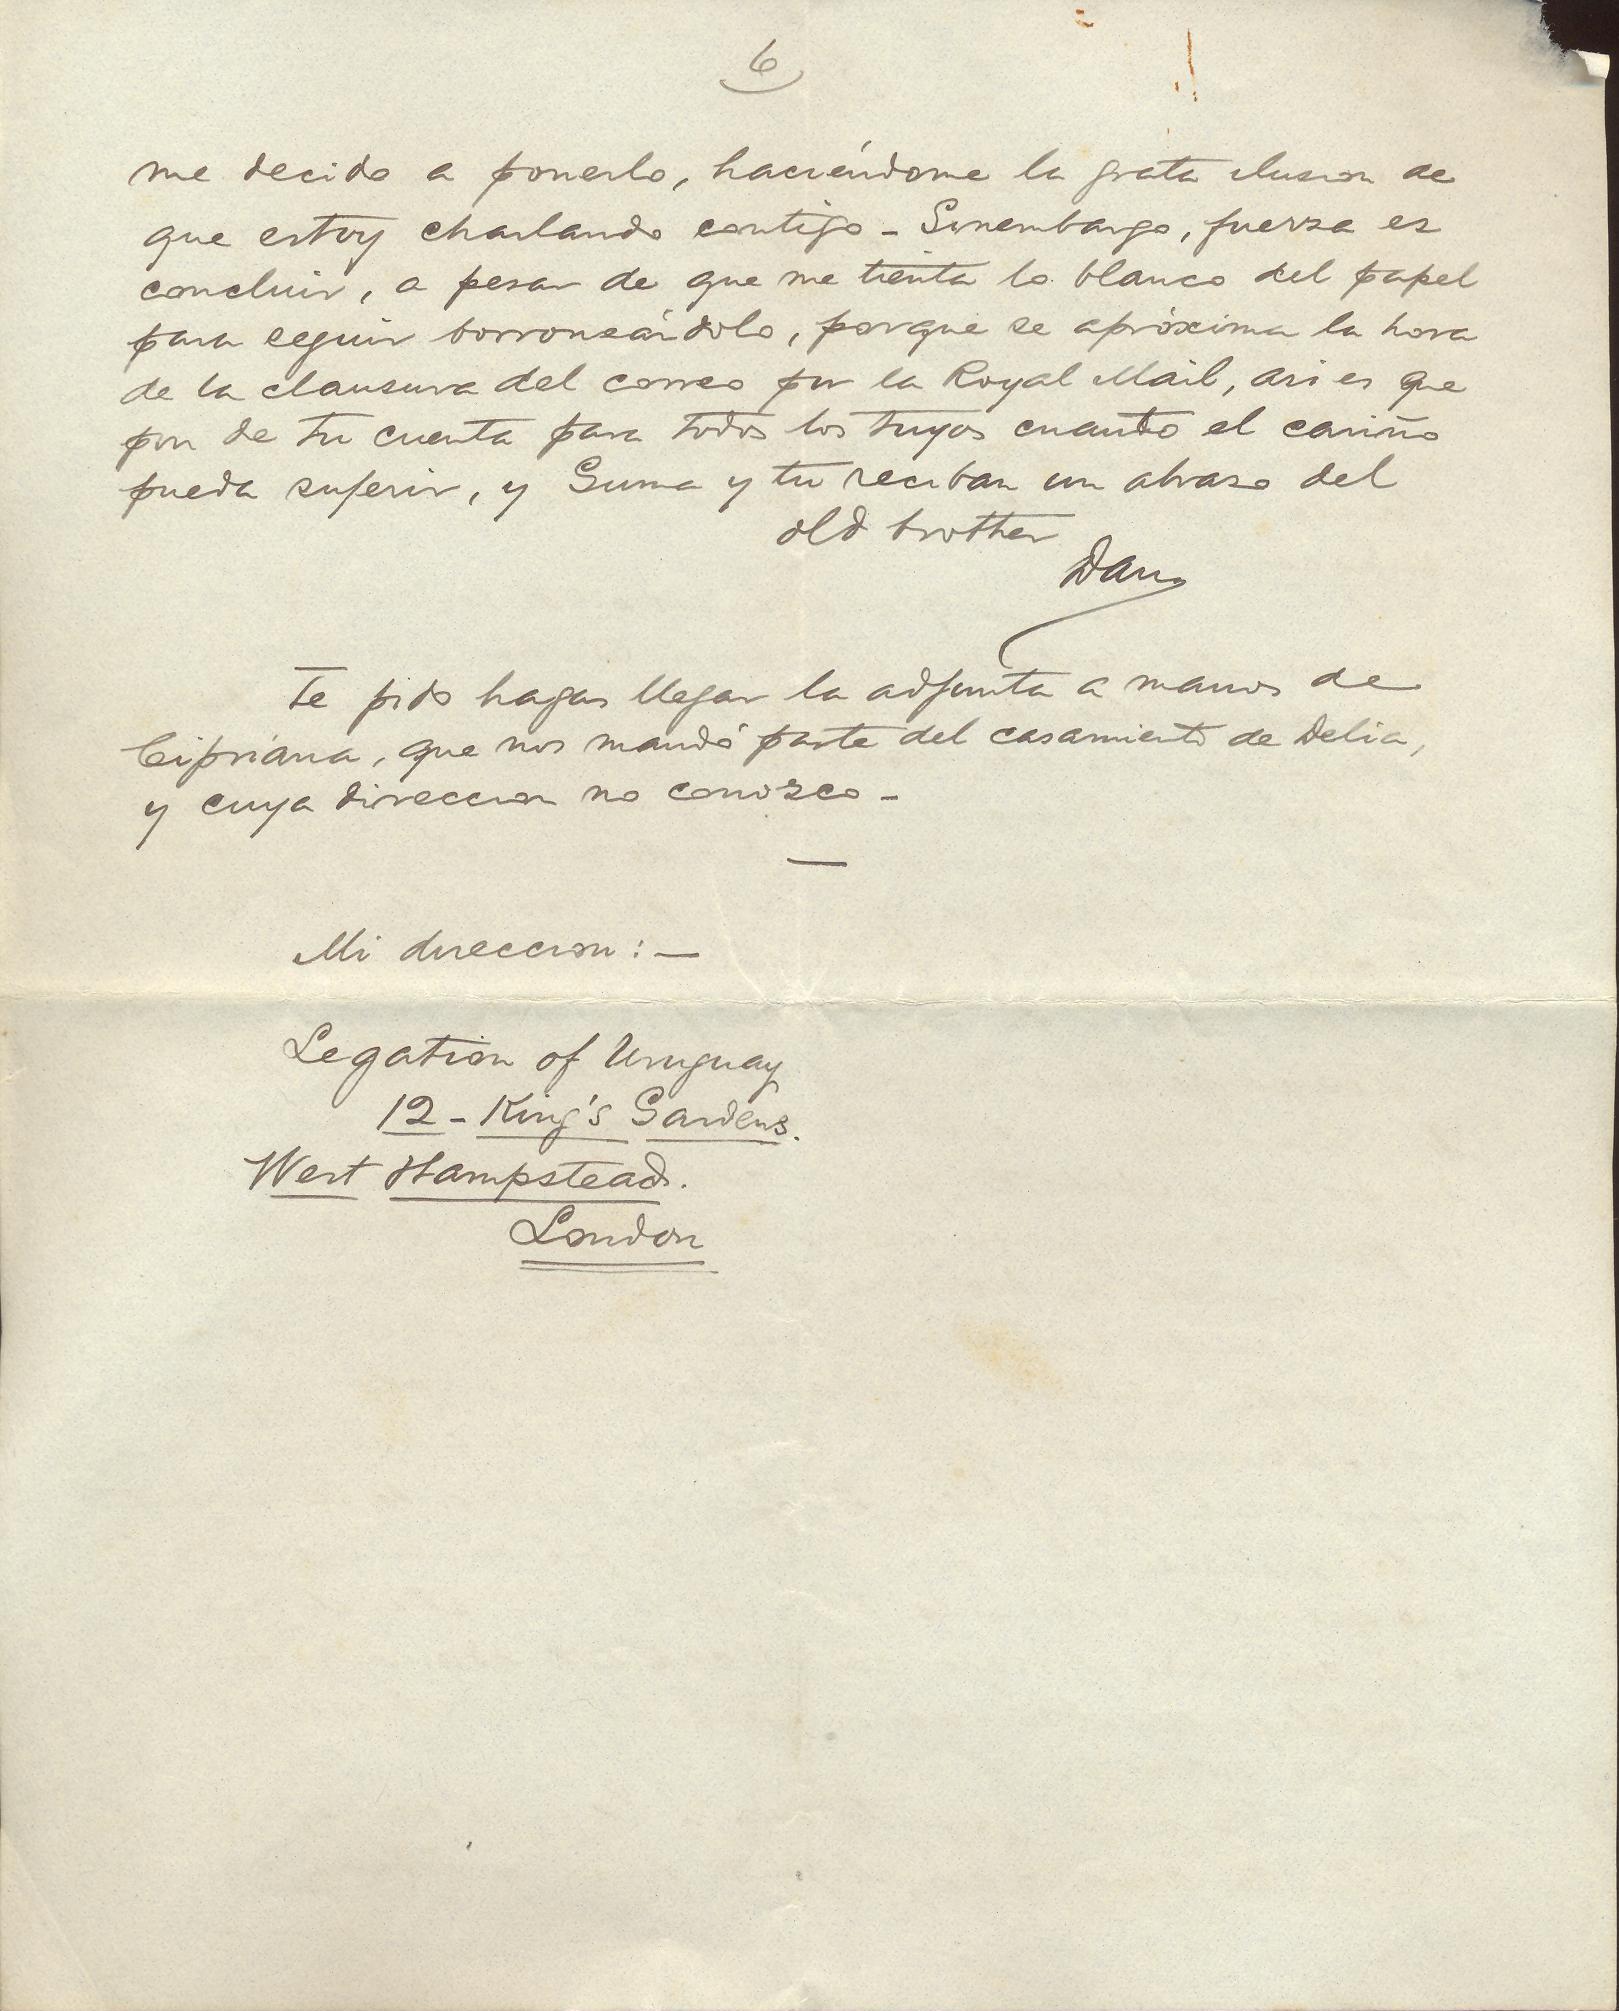 6
me decido a ponerlo, haciéndome la grata ilusion de
que estoy charlando contigo - Sinembargo, fuerza es
concluir, a pesar de que me tienta lo blanco del papel
para seguir borroneándolo, porque se apróxima la hora
de la clausura del correo por la Royal Mail, asi es que
pon de tu cuenta para todos los tuyos cuanto el cariño
pueda sujerir, y Guma y tu reciban un abrazo del
old brother
Dan
Te pido hagas llegar la adjunta a manos de
Cipriana, que nos mandó parte del casamiento de Delia,
y cuya direccion no conozco -
Mi direccion: -
Legation of Uruguay
12 - King's Gardens.
West Hampstead.
London